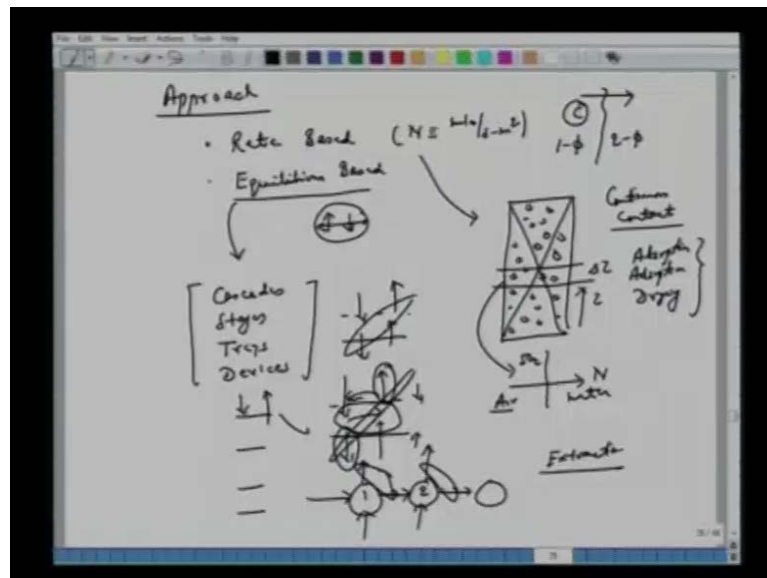 File Edit View Insert Actions Tools Help
Approach
• Rate Based (N ≡ mole/s-m²)
• Equilibrium Based
C
1-ϕ 2-ϕ
Continuous
Contact
Adsorption
Adsorption
Drying
ΔZ
Z
Cascades
Stages
Trays
Devices
N
Air
water
Extractor
1 2